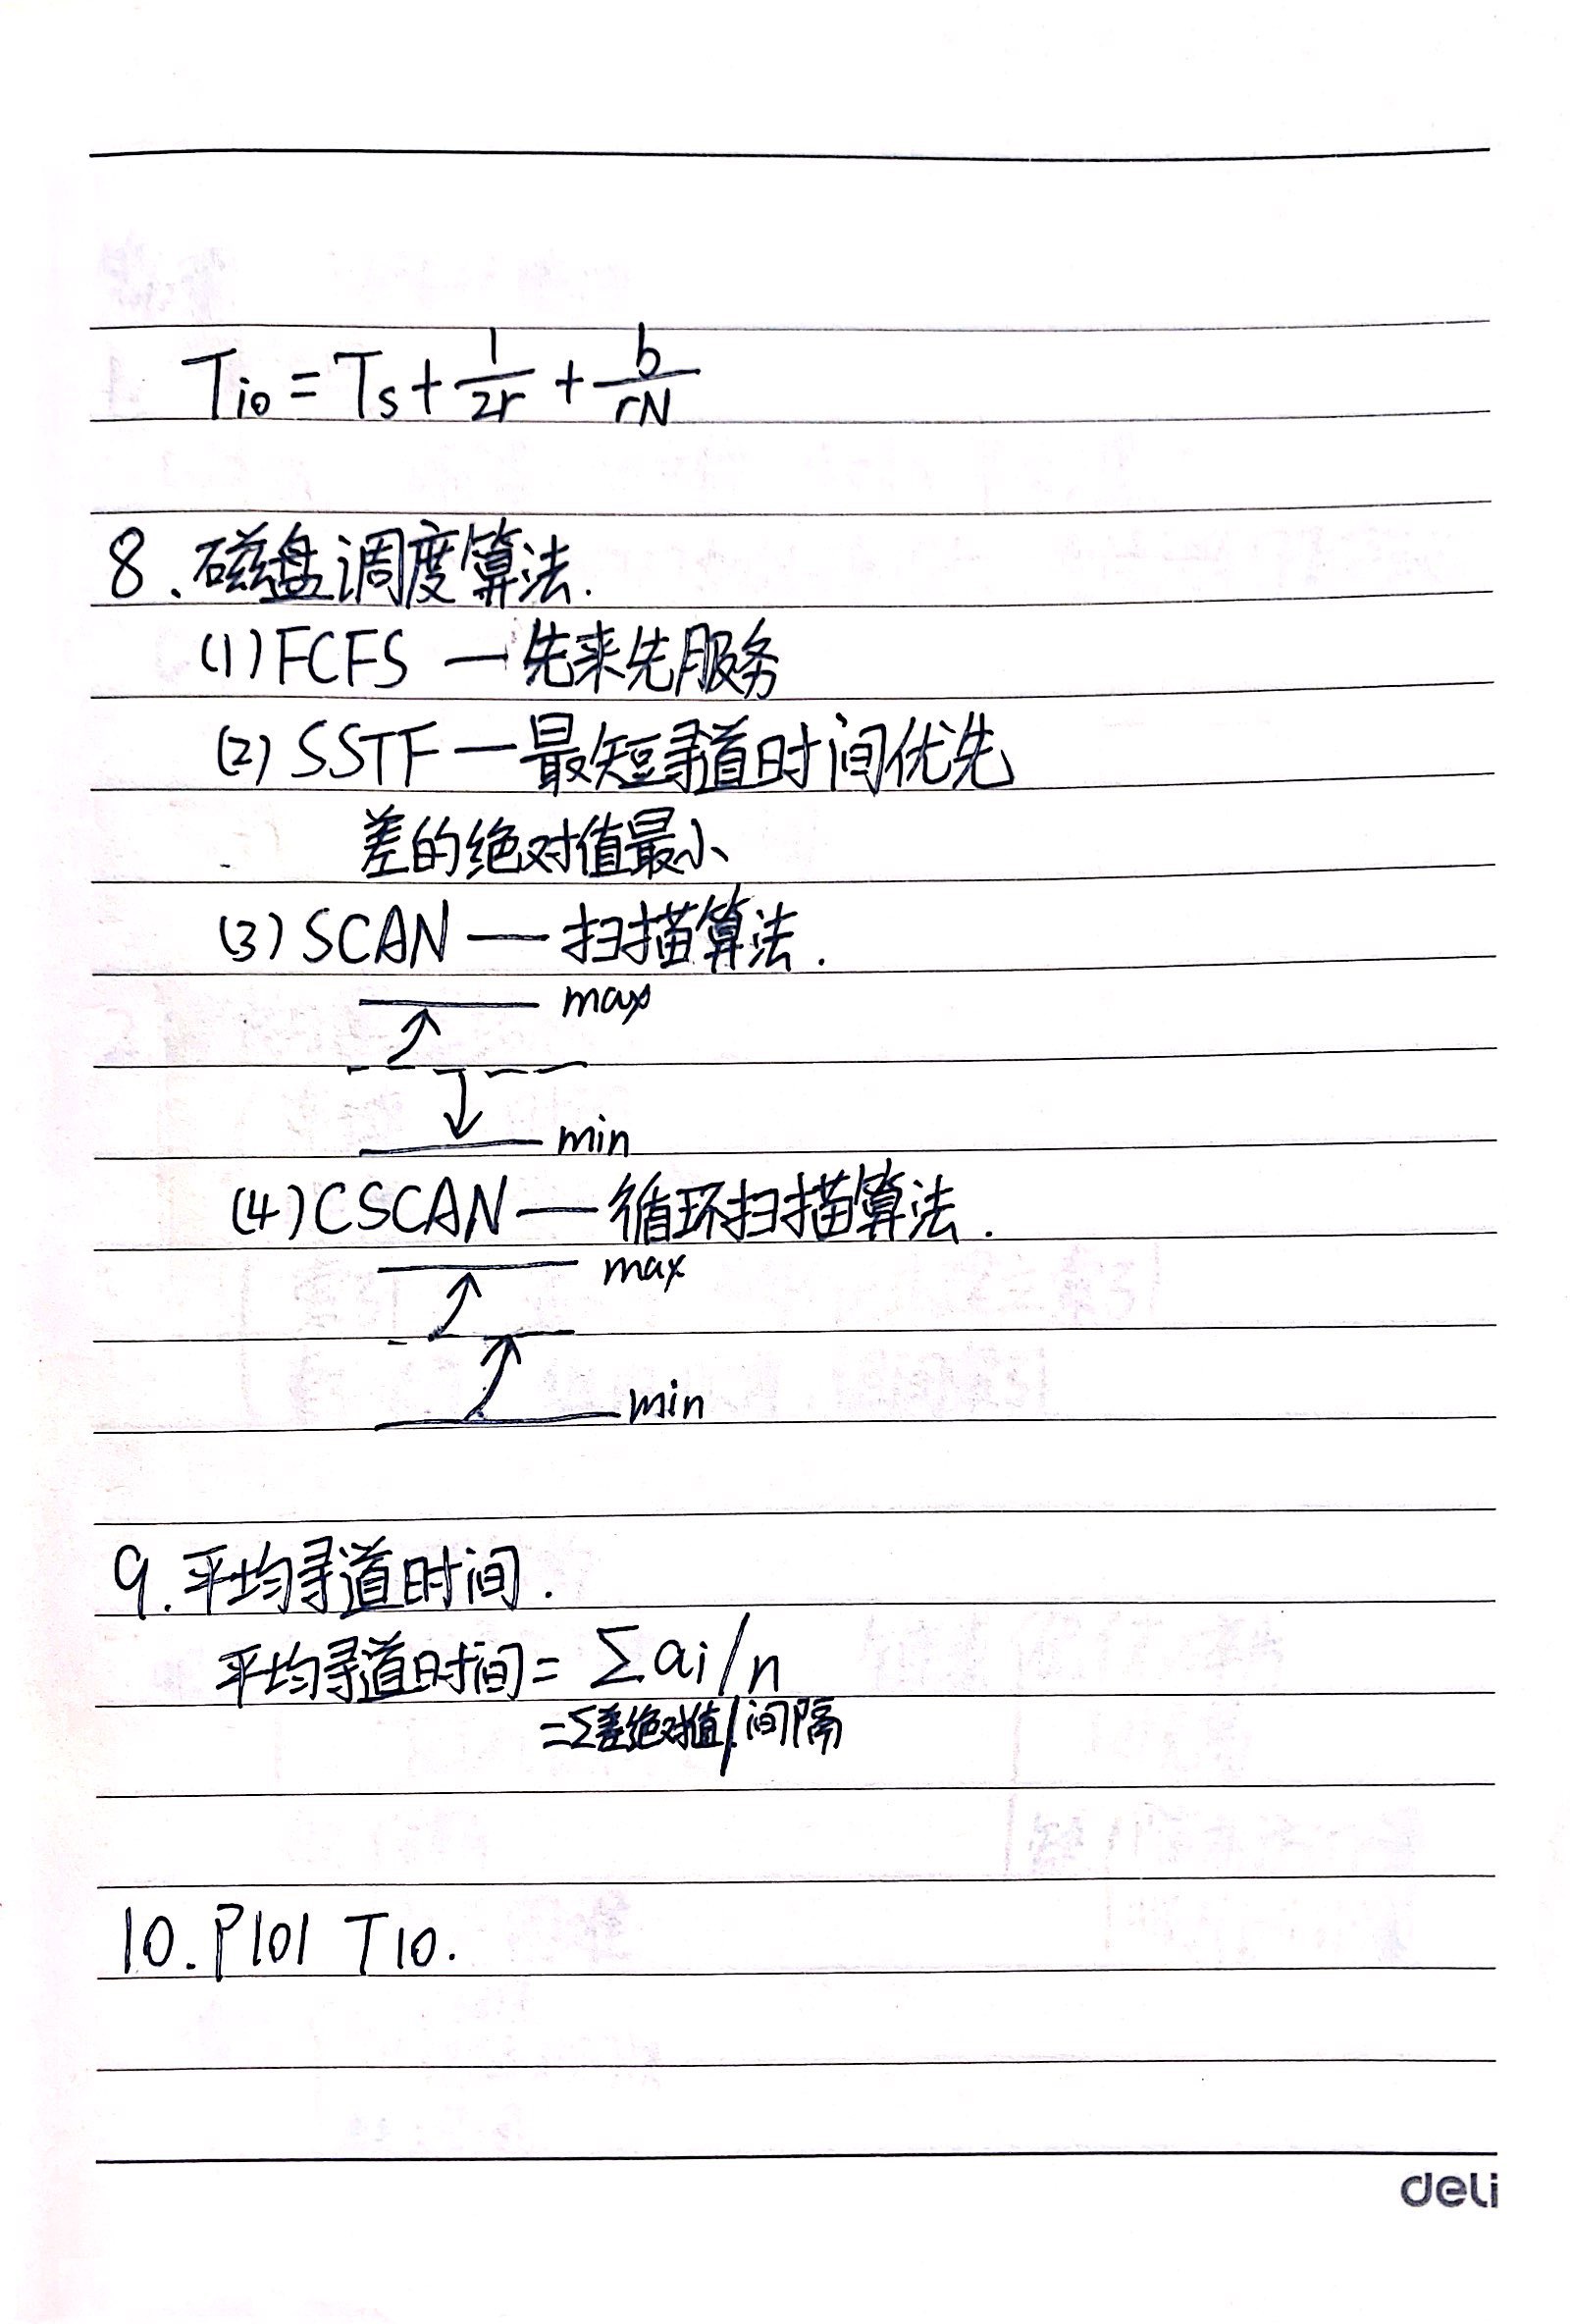 Tio = Ts + 1/2r + b/rN
8、磁盘调度算法.
(1) FCFS — 先来先服务
(2) SSTF — 最短寻道时间优先
差的绝对值最小
(3) SCAN — 扫描算法.
max
min
(4) CSCAN — 循环扫描算法.
max
min
9.平均寻道时间.
平均寻道时间 = Σai/n
=Σ差绝对值/间隔
10. P101 T10.
deli